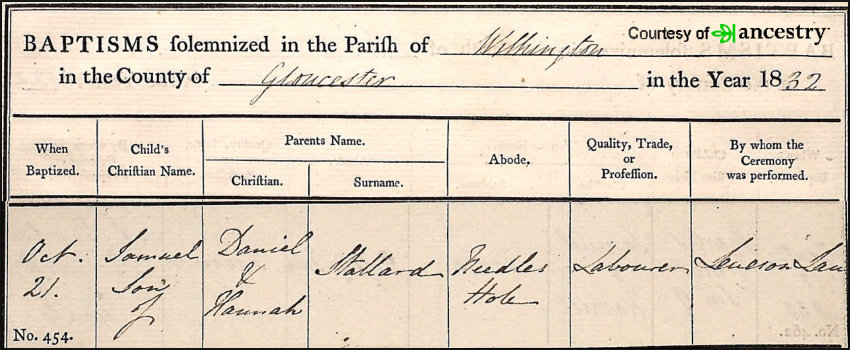 Courtesy of ancestry
BAPTISMS ſolemnized in the Pariſh of Withington
in the County of Gloucester in the Year 1832
When Baptized.
Child's Chriſtian Name.
Parents Name.
Chriſtian.
Surname.
Abode.
Quality, Trade, or Profeſſion.
By whom the Ceremony was performed.
Oct. 21.
Samuel Son of
Daniel & Hannah
Stallard
Needles Hole
Labourer
Leveson Lan
No. 454.